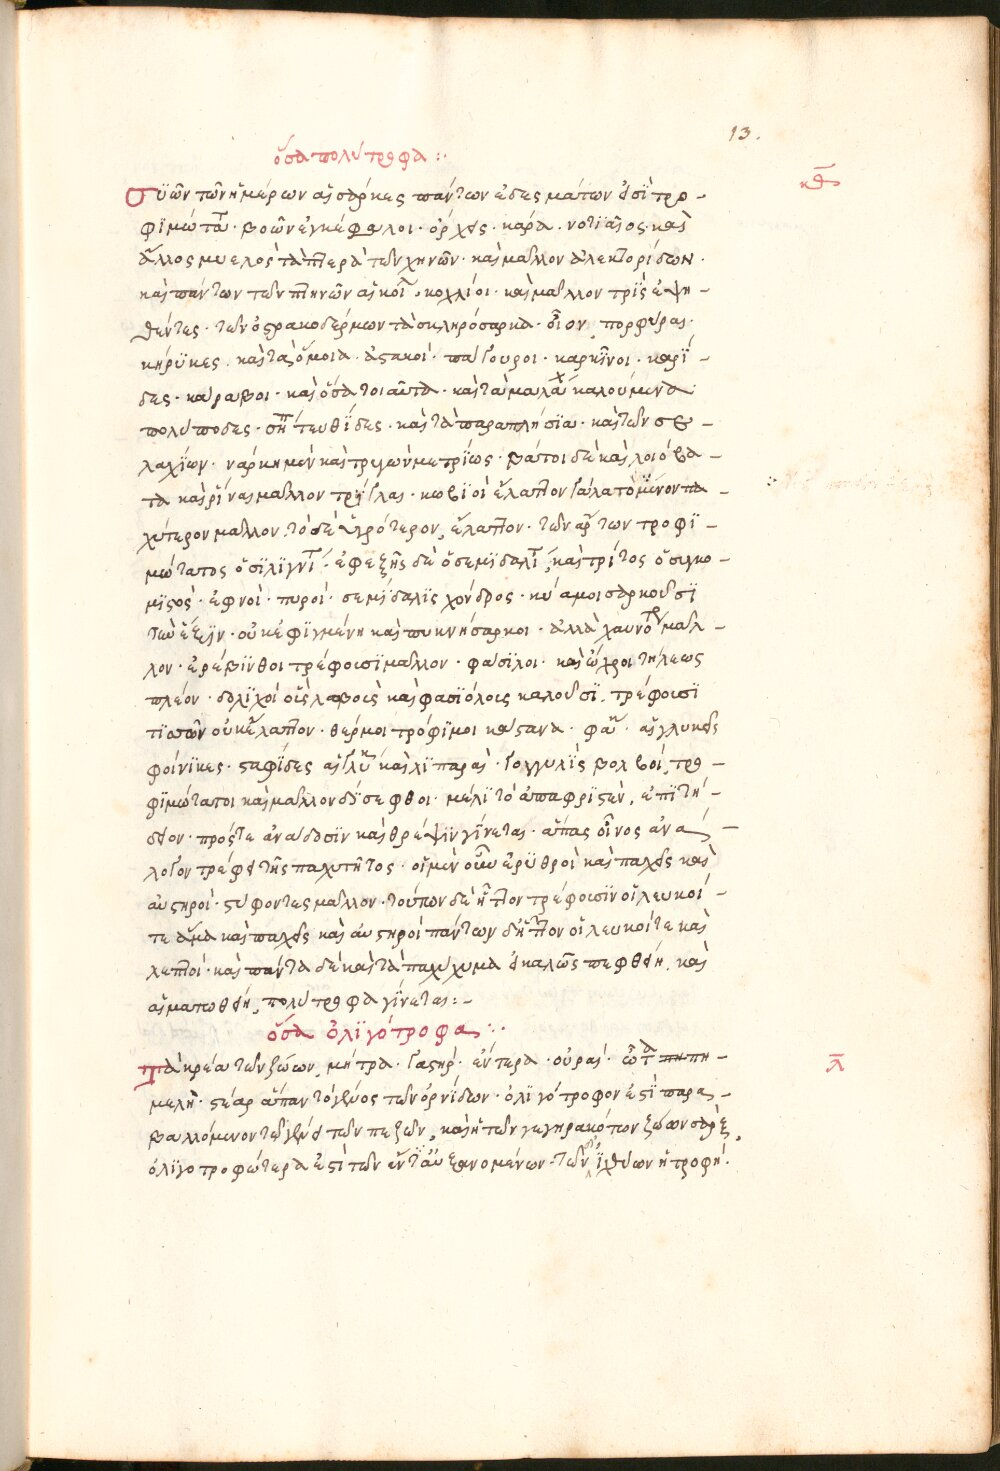 13.
ὅσα πολύτροφα :·
κθ
Συῶν τῶν ἡμέρων αἱ σάρκες πάντων ἐδεσμάτων εἰσὶ τρο-
φϊμώτα· βοῶν ἐγκέφαλοι· ὄρχεις· καρδ. νοτιαῖος καὶ
ἄλλος μυελὸς τὰ πτερὰ τῶν χηνῶν· καὶ μᾶλλον ἀλεκτορίδων·
καὶ πάντων τῶν πτηνῶν αἱ κοι. κοχλίοι· καὶ μᾶλλον τρὶς ἑψη-
θέντες· τῶν ὀστρακοδέρμων τὰ σκληρόσαρκα· οἷον, πορφύραι·
κήρυκες. καὶ τὰ ὅμοια· ἀστακοί· πάγουροι· καρκῖνοι· καρί-
δες· κάραβοι· καὶ ὅσα τοιαῦτα· καὶ τὰ μαλάχ καλούμενα·
πολύποδες· σηπ τευθίδες· καὶ τὰ παραπλήσϊα· καὶ τῶν σε-
λαχίων· νάρκη μὲν καὶ τρυγὼν μετρίως· βάτοι δὲ καὶ λειόβα-
τα καὶ ῥίνας μᾶλλον τρίγλας· κωβϊοὶ ἔλαττον γάλα τὸ μὲν ὂν πα-
χύτερον μᾶλλον, τὸ δὲ ὑγρότερον, ἔλαττον· τῶν ἄρτων τροφϊ-
μώτατος ὁ σϊλϊγνι· ἐφεξῆς δὲ ὁ σεμϊδαλι, καὶ τρίτος ὁ συγκο-
μϊστός· ἑφθοὶ· πυροί· σεμίδαλϊς χόνδρος· κύαμοι σαρκοῦσϊ
τὴν ἕξϊν· οὐκ ἐφϊγμένη καὶ πυκνῇ σαρκι· ἀλλὰ χαυνοτρ μᾶλ-
λον· ἐρέβϊνθοι τρέφουσϊ μᾶλλον· φάσϊλοι· καὶ ὦχροι τήλεως
πλέον· δόλϊχοί οἷς λοβοὺς καὶ φασϊόλους καλοῦσϊ, τρέφουσϊ
πϊσῶν οὐκ ἔλαττον· θέρμοι τρόφϊμοι κάστανα· φα. αἱ γλυκεῖς
φοίνϊκες· σταφίδες αἱ γλυκ καὶ λϊπαραὶ· γογγυλὶς βολβοί, τρο-
φϊμώτατοι καὶ μᾶλλον δϊσεφθοι· μέλϊ τὸ ἀπαφρϊσθέν, ἐπϊτή-
δειον· πρός τε ἀνάδοσϊν καὶ θρέψϊν γίνεται· ἅπας οἶνος ἀνά-
λογον τρέφει τῆς παχύτητος· οἱ μὲν οὖν ἐρϋθροὶ καὶ παχεῖς καὶ
αὐστηροὶ· στύφοντες μᾶλλον· τούτων δὲ ἧττον τρέφουσϊν οἱ λευκοί-
τε ἅμα καὶ παχεῖς καὶ αὐστηροὶ πάντων δ' ἧττον οἱ λευκοίτε καὶ
λεπτοί· καὶ πάντα δὲ καὶ τὰ παχύχυμα εἰ καλῶς πεφθείη, καὶ
αἱματωθείη, πολύτροφα γίνεται:-
ὅσα ὀλϊγότροφα :·
λ
Τὰ κρέα τῶν ζώων, μήτρα· γαστήρ· ἔντερα· οὐραί· ὦτα πη πη-
μελή· στέαρ ἅπαν τὸ γένος τῶν ὀρνίδων· ὀλϊγότροφον ἐστὶ παρα-
βαλλόμενον τῷ γένει τῶν πεζῶν, καὶ ἡ τῶν γεγηρακότων ζώων σὰρξ,
ὀλϊγοτροφώτερα ἐστὶ τῶν ἔτι αὐξανομένων· τῶν ἰχθύων ἡ τροφή·